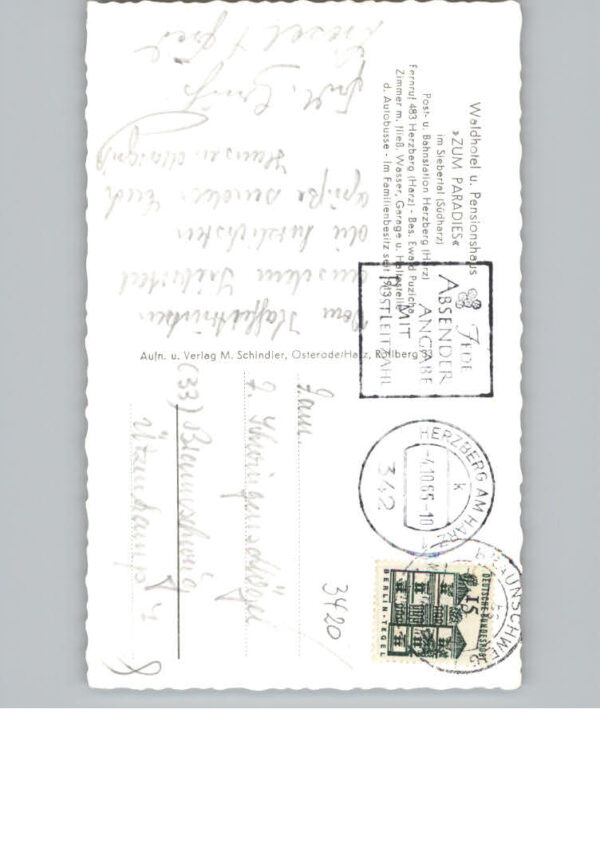 Waldhotel u. Pensionshaus
»ZUM PARADIES«
im Siebertal (Südharz)
Post- u. Bahnstation Herzberg (Harz)
Fernruf 483 Herzberg (Harz) - Bes. Ewald Puzicha
Zimmer m. fließ. Wasser, Garage u. Haltestelle
d. Autobusse - Im Familienbesitz seit 1913
Vom Kaffeetrinken
aus dem Siebertal
die herzlichsten
Grüße senden Euch
Aufn. u. Verlag M. Schindler, Osterode/Harz, Rollberg
JEDE
ABSENDER
ANGABE
MIT
POSTLEITZAHL
HERZBERG AM HARZ
-4.10.65-10
k
342
BRAUNSCHWEIG
DEUTSCHE BUNDESPOST
15
BERLIN-TEGEL
Fam.
(33) Braunschweig
3420